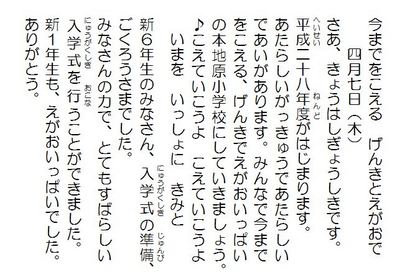 今までをこえる　げんきとえがおで
四月七日（木）
さあ、きょうはしぎょうしきです。
平成二十八年度がはじまります。
あたらしいがっきゅうであたらしい
であいがあります。みんなで今まで
をこえる、げんきでえがおいっぱい
の本地原小学校にしていきましょう。
♪こえていこうよ　こえていこうよ
いまを　いっしょに　きみと
新６年生のみなさん、入学式の準備、
ごくろうさまでした。
みなさんの力で、とてもすばらしい
入学式を行うことができました。
新１年生も、えがおいっぱいでした。
ありがとう。